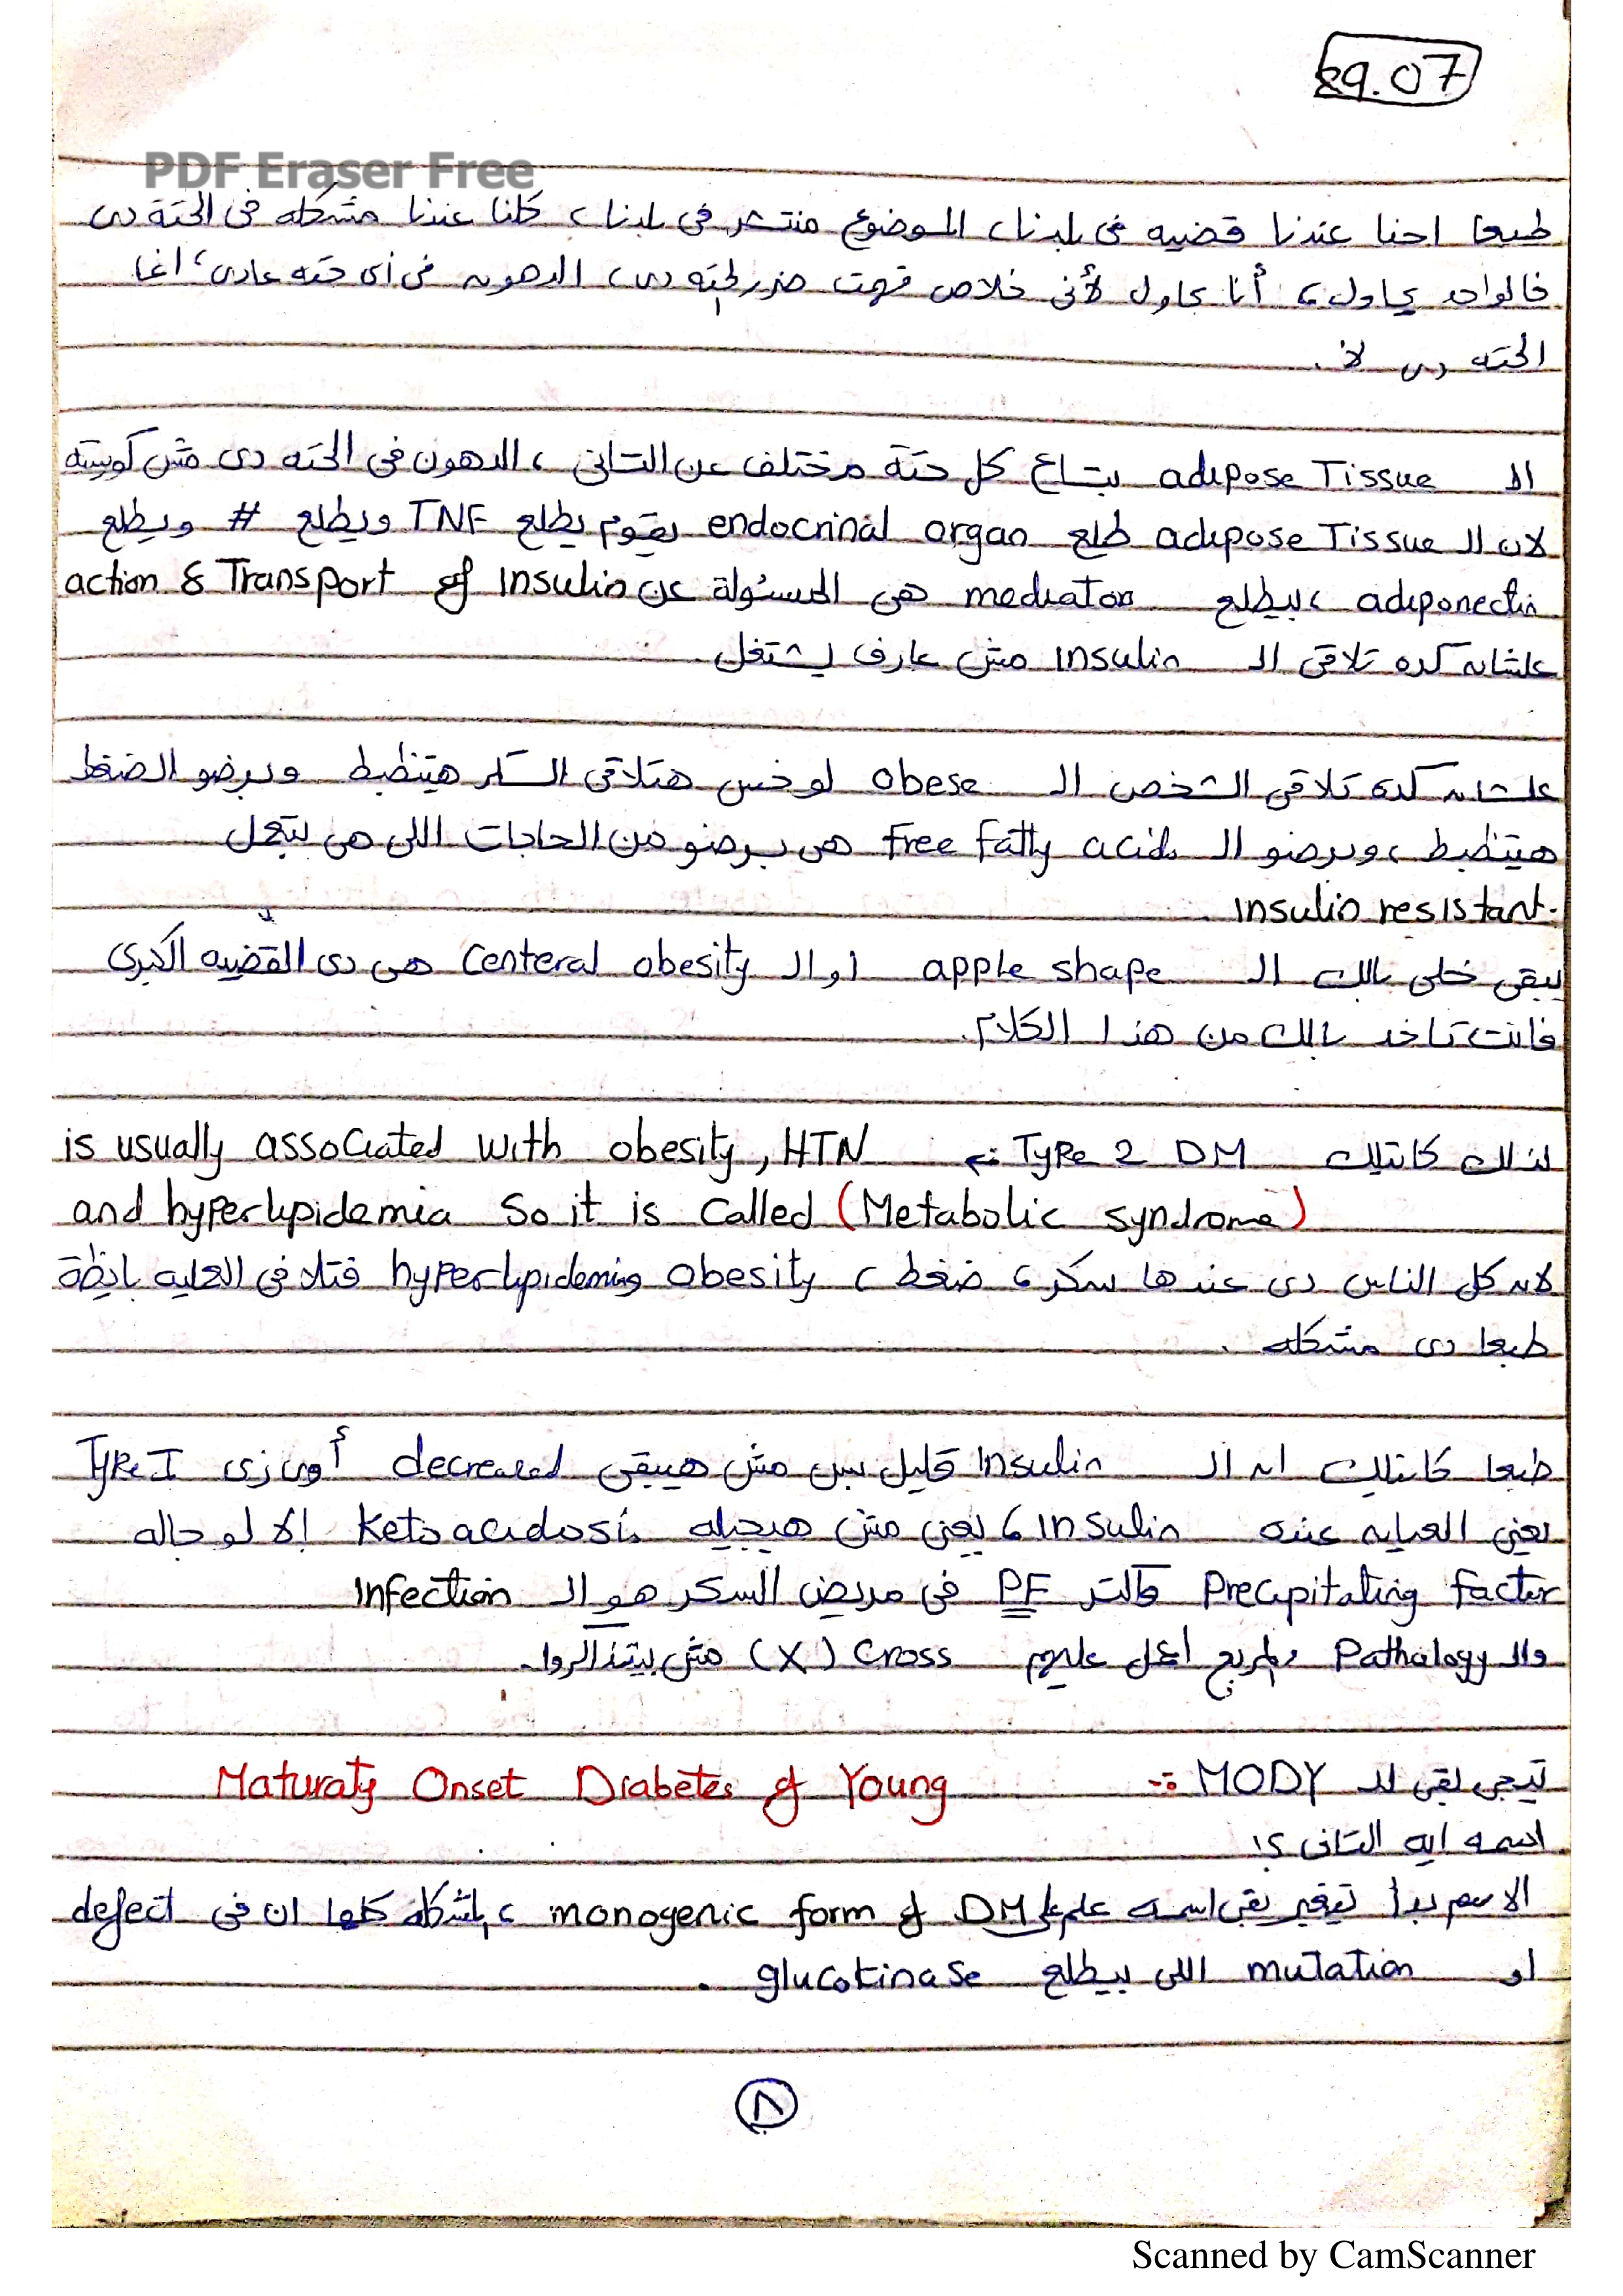 29.07
PDF Eraser Free
طبعا احنا عندنا قضيه فى بلدنا، الموضوع منتشر فى بلدنا، كلنا عندنا مشكله فى الحتة دى
فالواحد يحاول، أنا بحاول لأنى خلاص فهمت ضرر الحته دى، الدهون فى أى حته عادى، انما
الحته دى لأ.
الـ adipose Tissue بتاع كل حتة مختلف عن التانى، الدهون فى الحته دى مش كويسه
لان الـ adipose Tissue طلع endocrinal organ يقوم يطلع TNF ويطلع # ويطلع
adiponectin، بيطلع mediator هى المسئولة عن action & Transport of Insulin
علشان كده تلاقى الـ Insulin مش عارف يشتغل
علشان كده تلاقى الشخص الـ obese لو خس هتلاقى السكر هيتظبط وبرضو الضغط
هيتظبط، وبرضو الـ Free Fatty acids هى برضو من الحاجات اللى هى بتعمل
Insulin resistant.
يبقى خلى بالك الـ apple shape او الـ Centeral obesity هى دى القضيه الكبرى
فانت تاخد بالك من هذا الكلام.
لذلك كاتبلك Type 2 DM :- is usually associated with obesity, HTN
and hyperlipidemia So it is called (Metabolic syndrome)
لان كل الناس دى عندها سكر، ضغط، obesity و hyperlipidemia فتلاقى العليه بايظة
طبعا دى مشكله.
طبعا كاتبلك ان الـ Insulin قليل بس مش هيبقى decreased أوى زى Type I
يعنى العيان عنده Insulin، يعنى مش هيجيله Ketoacidosis إلا لو جاله
Precipitating factor واكتر PF فى مريض السكر هو الـ Infection
والـ Pathology والمربع اعمل عليهم Cross (X) مش بيتذاكروا.
نيجى بقى للـ MODY :- Maturaty Onset Diabetes of Young
اسمه ايه التانى؟!
الاسم بدأ يتغير بقى اسمه علم على monogenic form of DM، المشكله كلها ان فى defect
او mutation اللى بيطلع glucokinase.
٨
Scanned by CamScanner